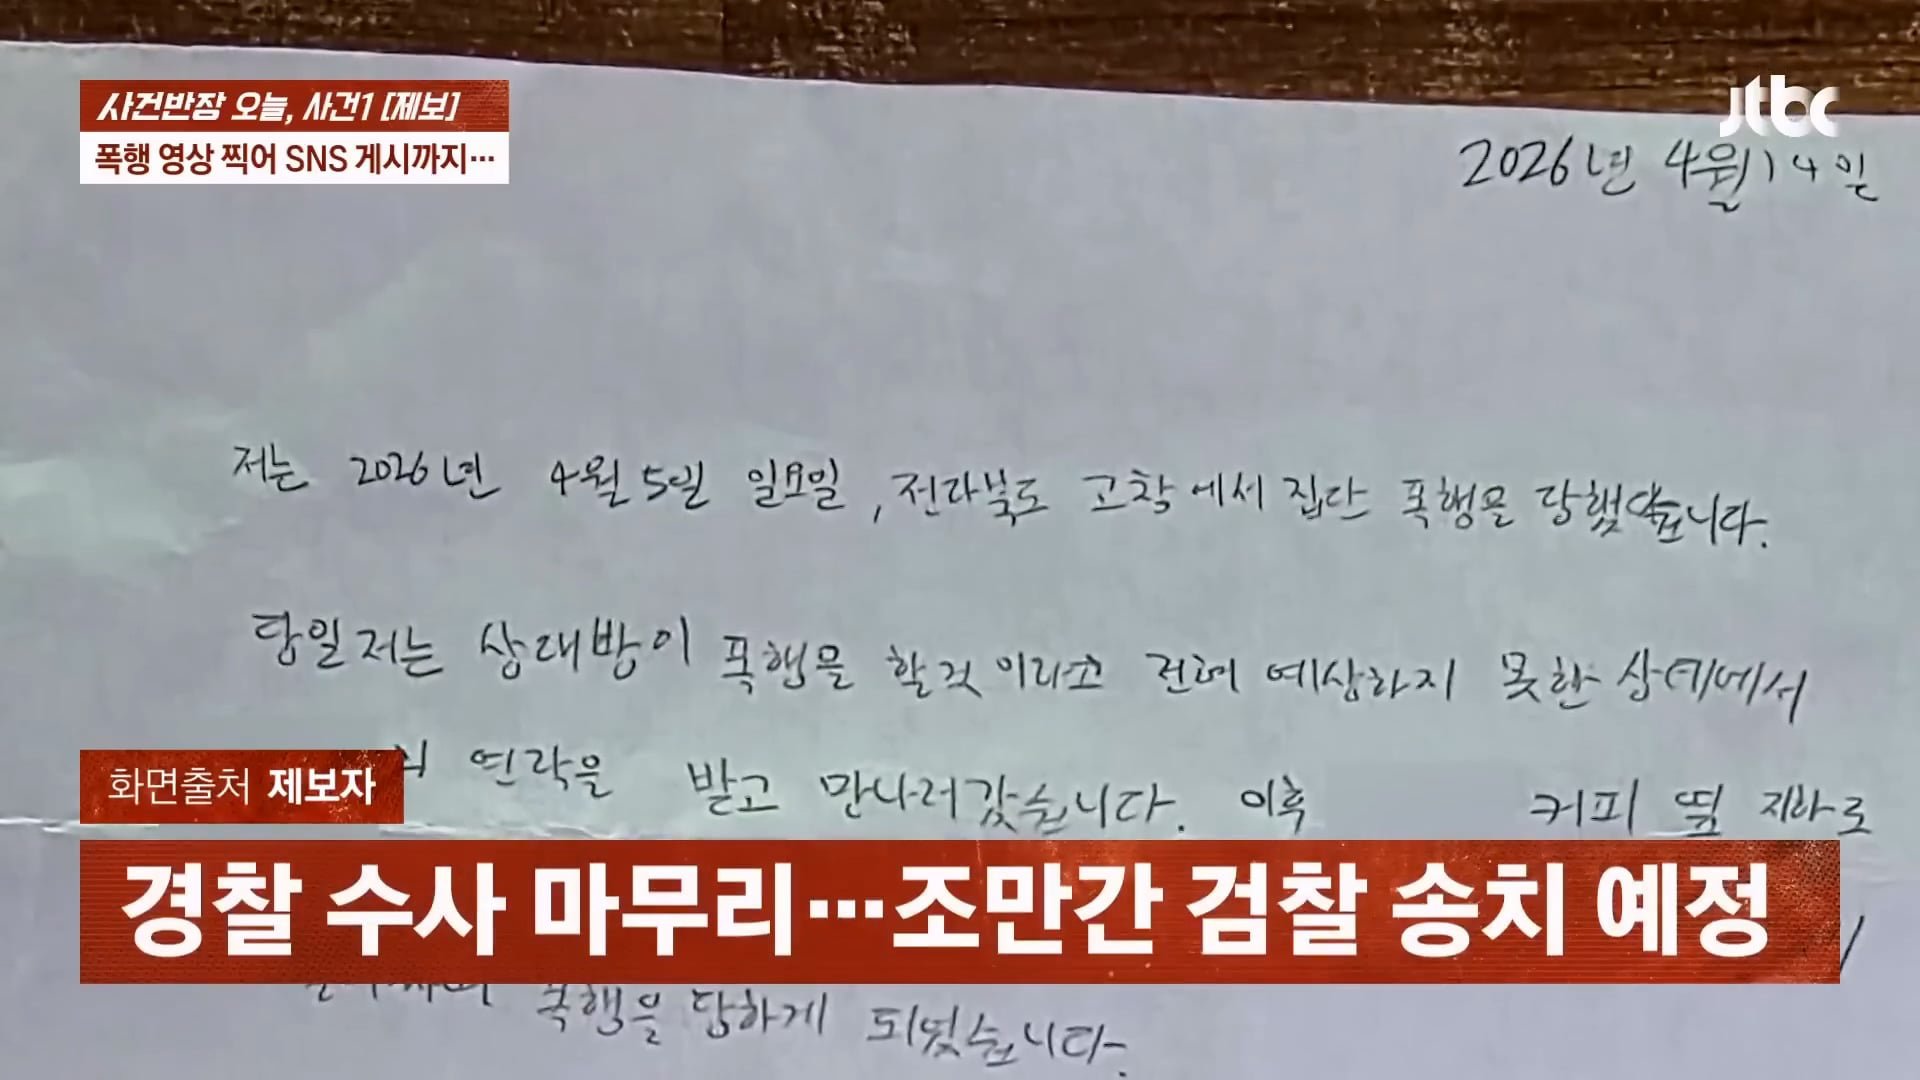 사건반장 오늘, 사건1 [제보]
폭행 영상 찍어 SNS 게시까지…
jtbc
2026년 4월 14일
저는 2026년 4월 5일 일요일, 전라북도 고창에서 집단 폭행을 당했습니다.
당일 저는 상대방이 폭행을 할것 이라고 전혀 예상하지 못한 상태에서
연락을 받고 만나러갔습니다. 이후 커피 옆 지하로
화면출처 제보자
경찰 수사 마무리…조만간 검찰 송치 예정
폭행을 당하게 되었습니다.